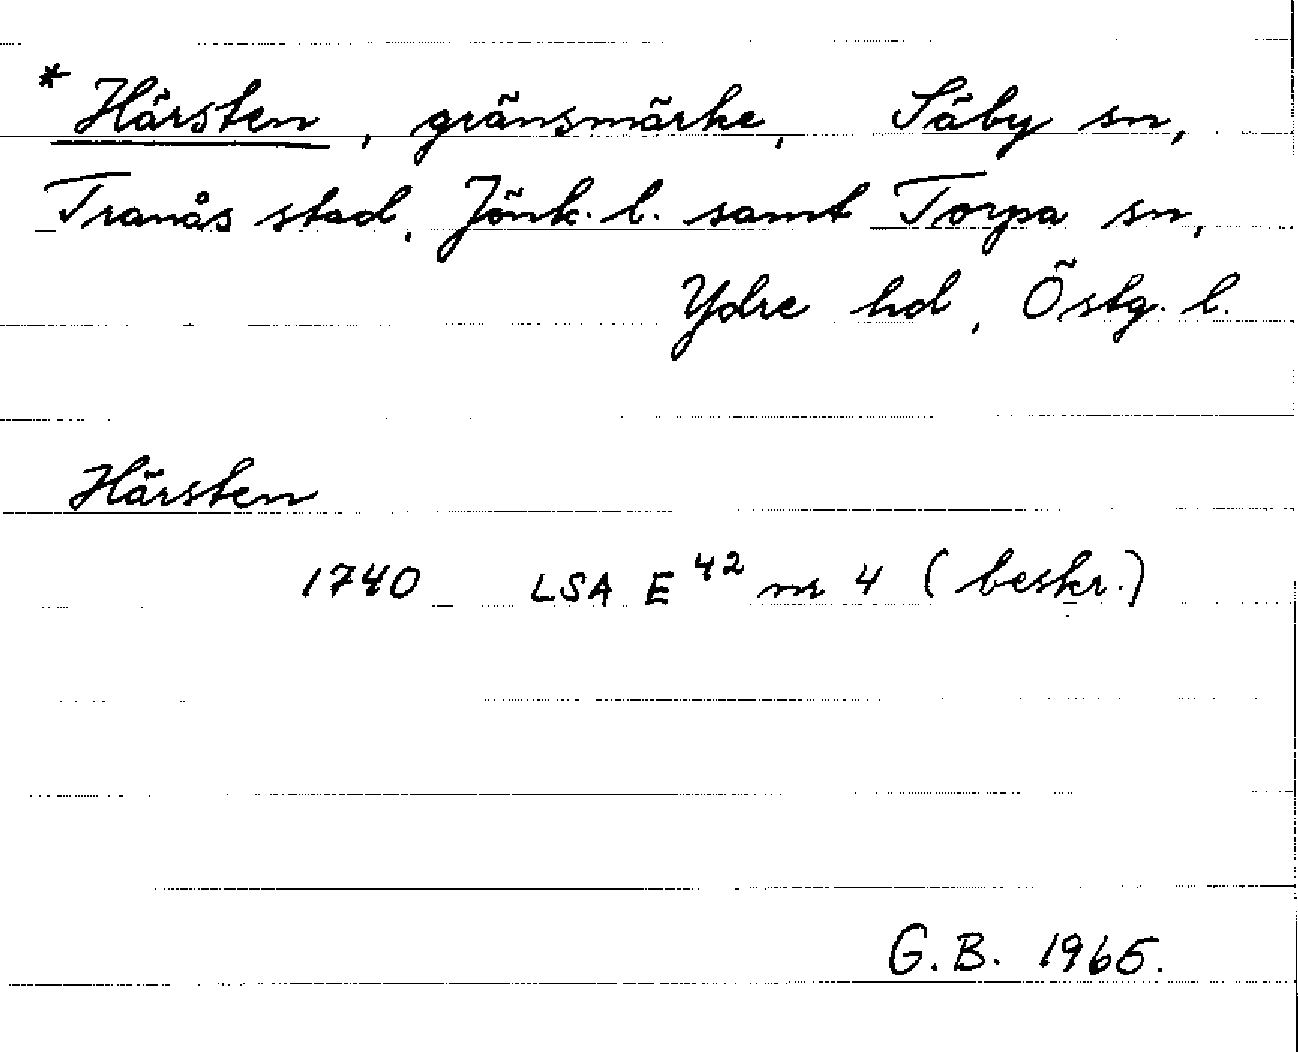 * Härsten, gränsmärke, Säby sn,
Tranås stad, Jönk. l. samt Torpa sn,
Ydre hd, Östg. l.
Härsten
1740 LSA E 42 nr 4 (beskr.)
G.B. 1965.